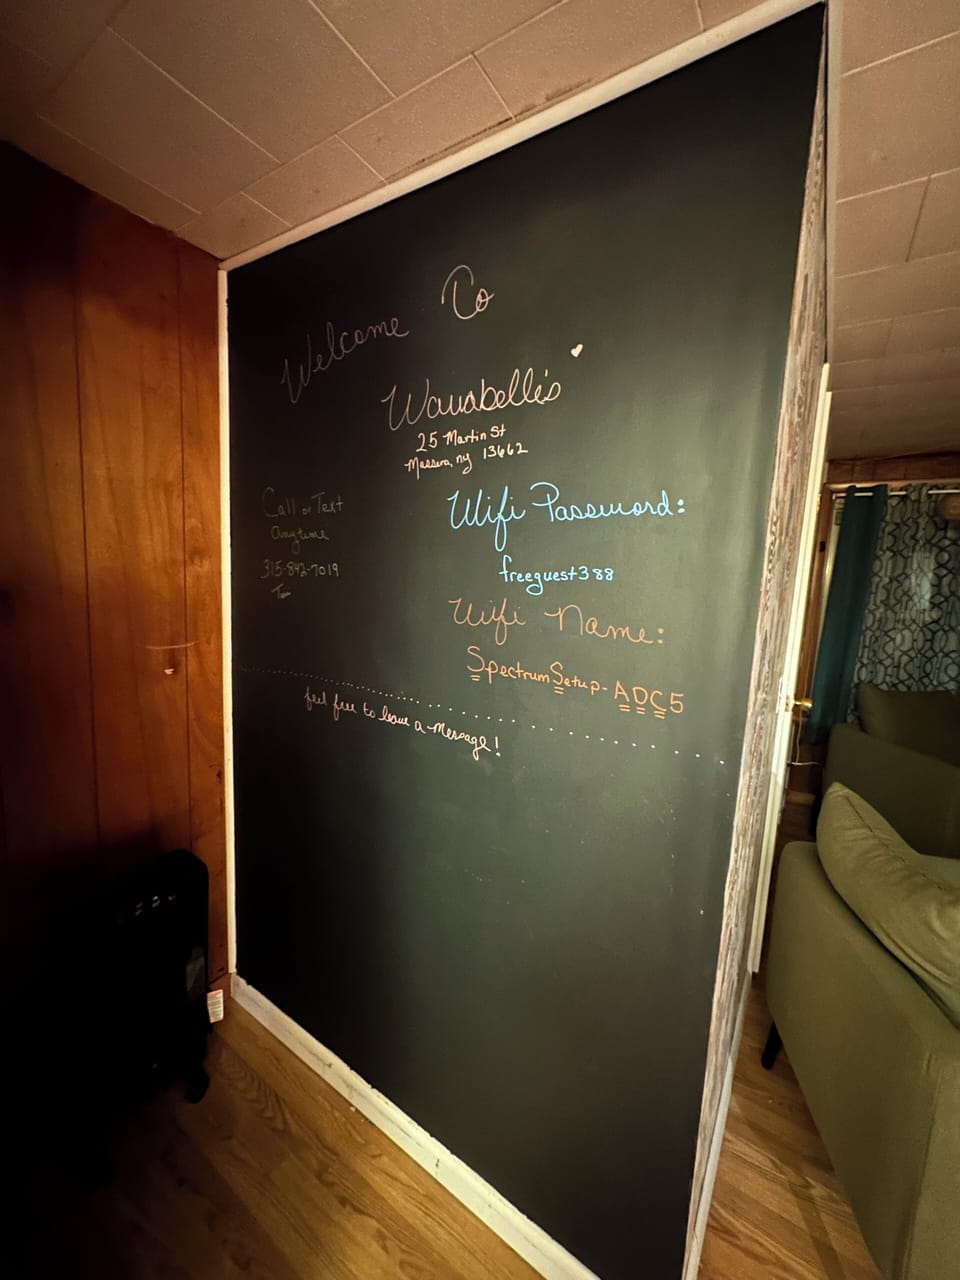 Welcome To
Wanabelle's
25 Martin St
Massena, ny 13662
Call or Text
anytime
315-842-7019
Wifi Password:
freeguest388
Wifi Name:
SpectrumSetup-ADC5
feel free to leave a message!